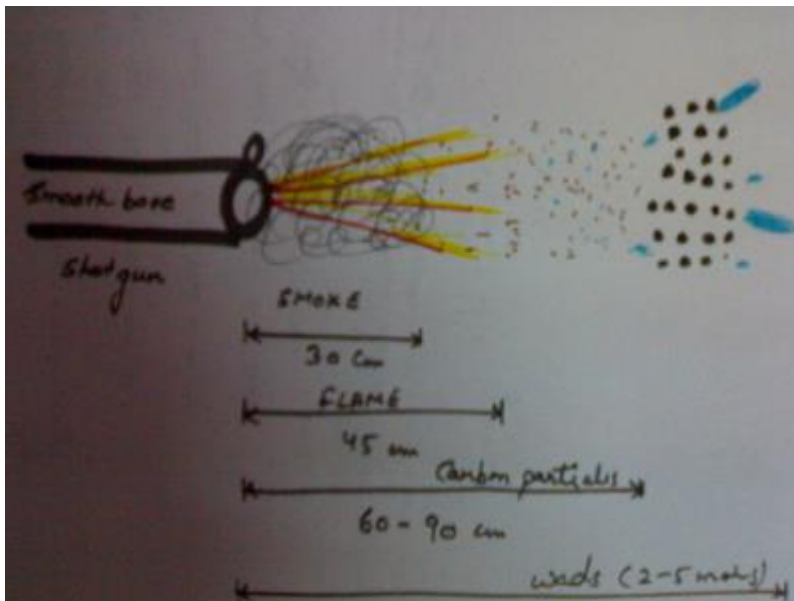 Smooth bore
Shotgun
SMOKE
30 cm
FLAME
45 cm
Carbon partials
60 - 90 cm
wads (2-5 mats)